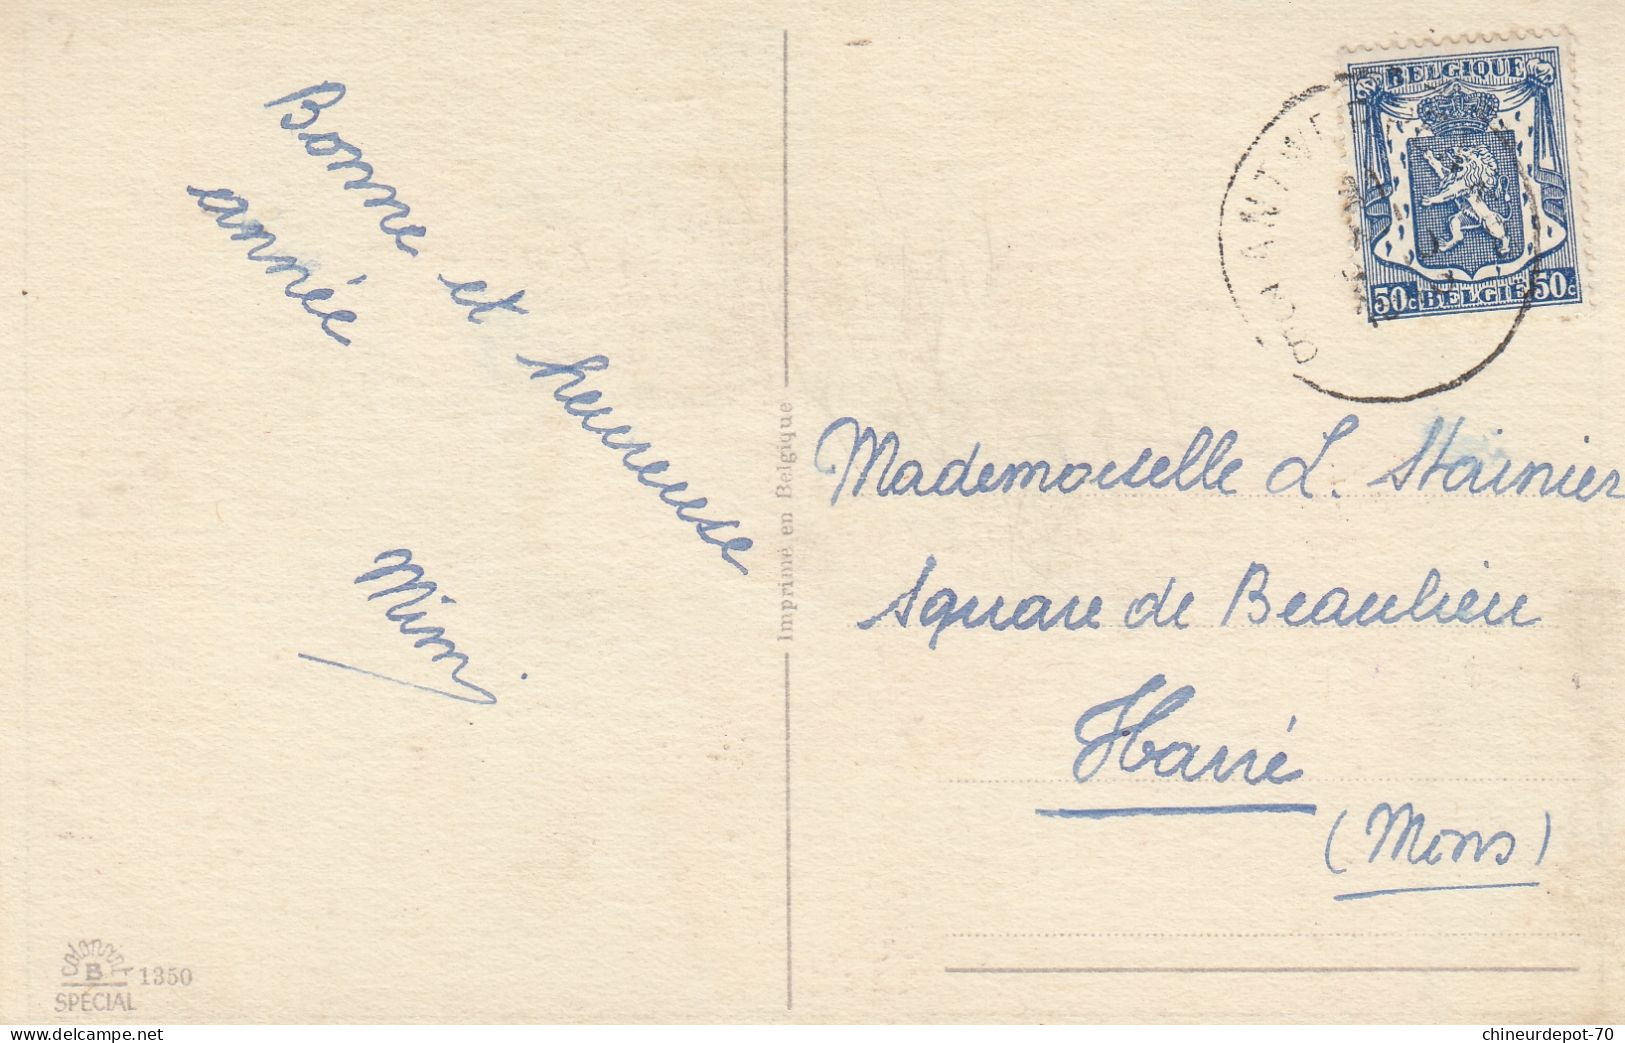 Bonne et heureuse
année
Mimi
Imprimé en Belgique
colorprint
B 1350
SPÉCIAL
BELGIQUE
50c BELGIË 50c
ANTWERP
Mademoiselle L. Stainier
Square de Beaulieu
Havré
(Mons)
www.delcampe.net
chineurdepot-70